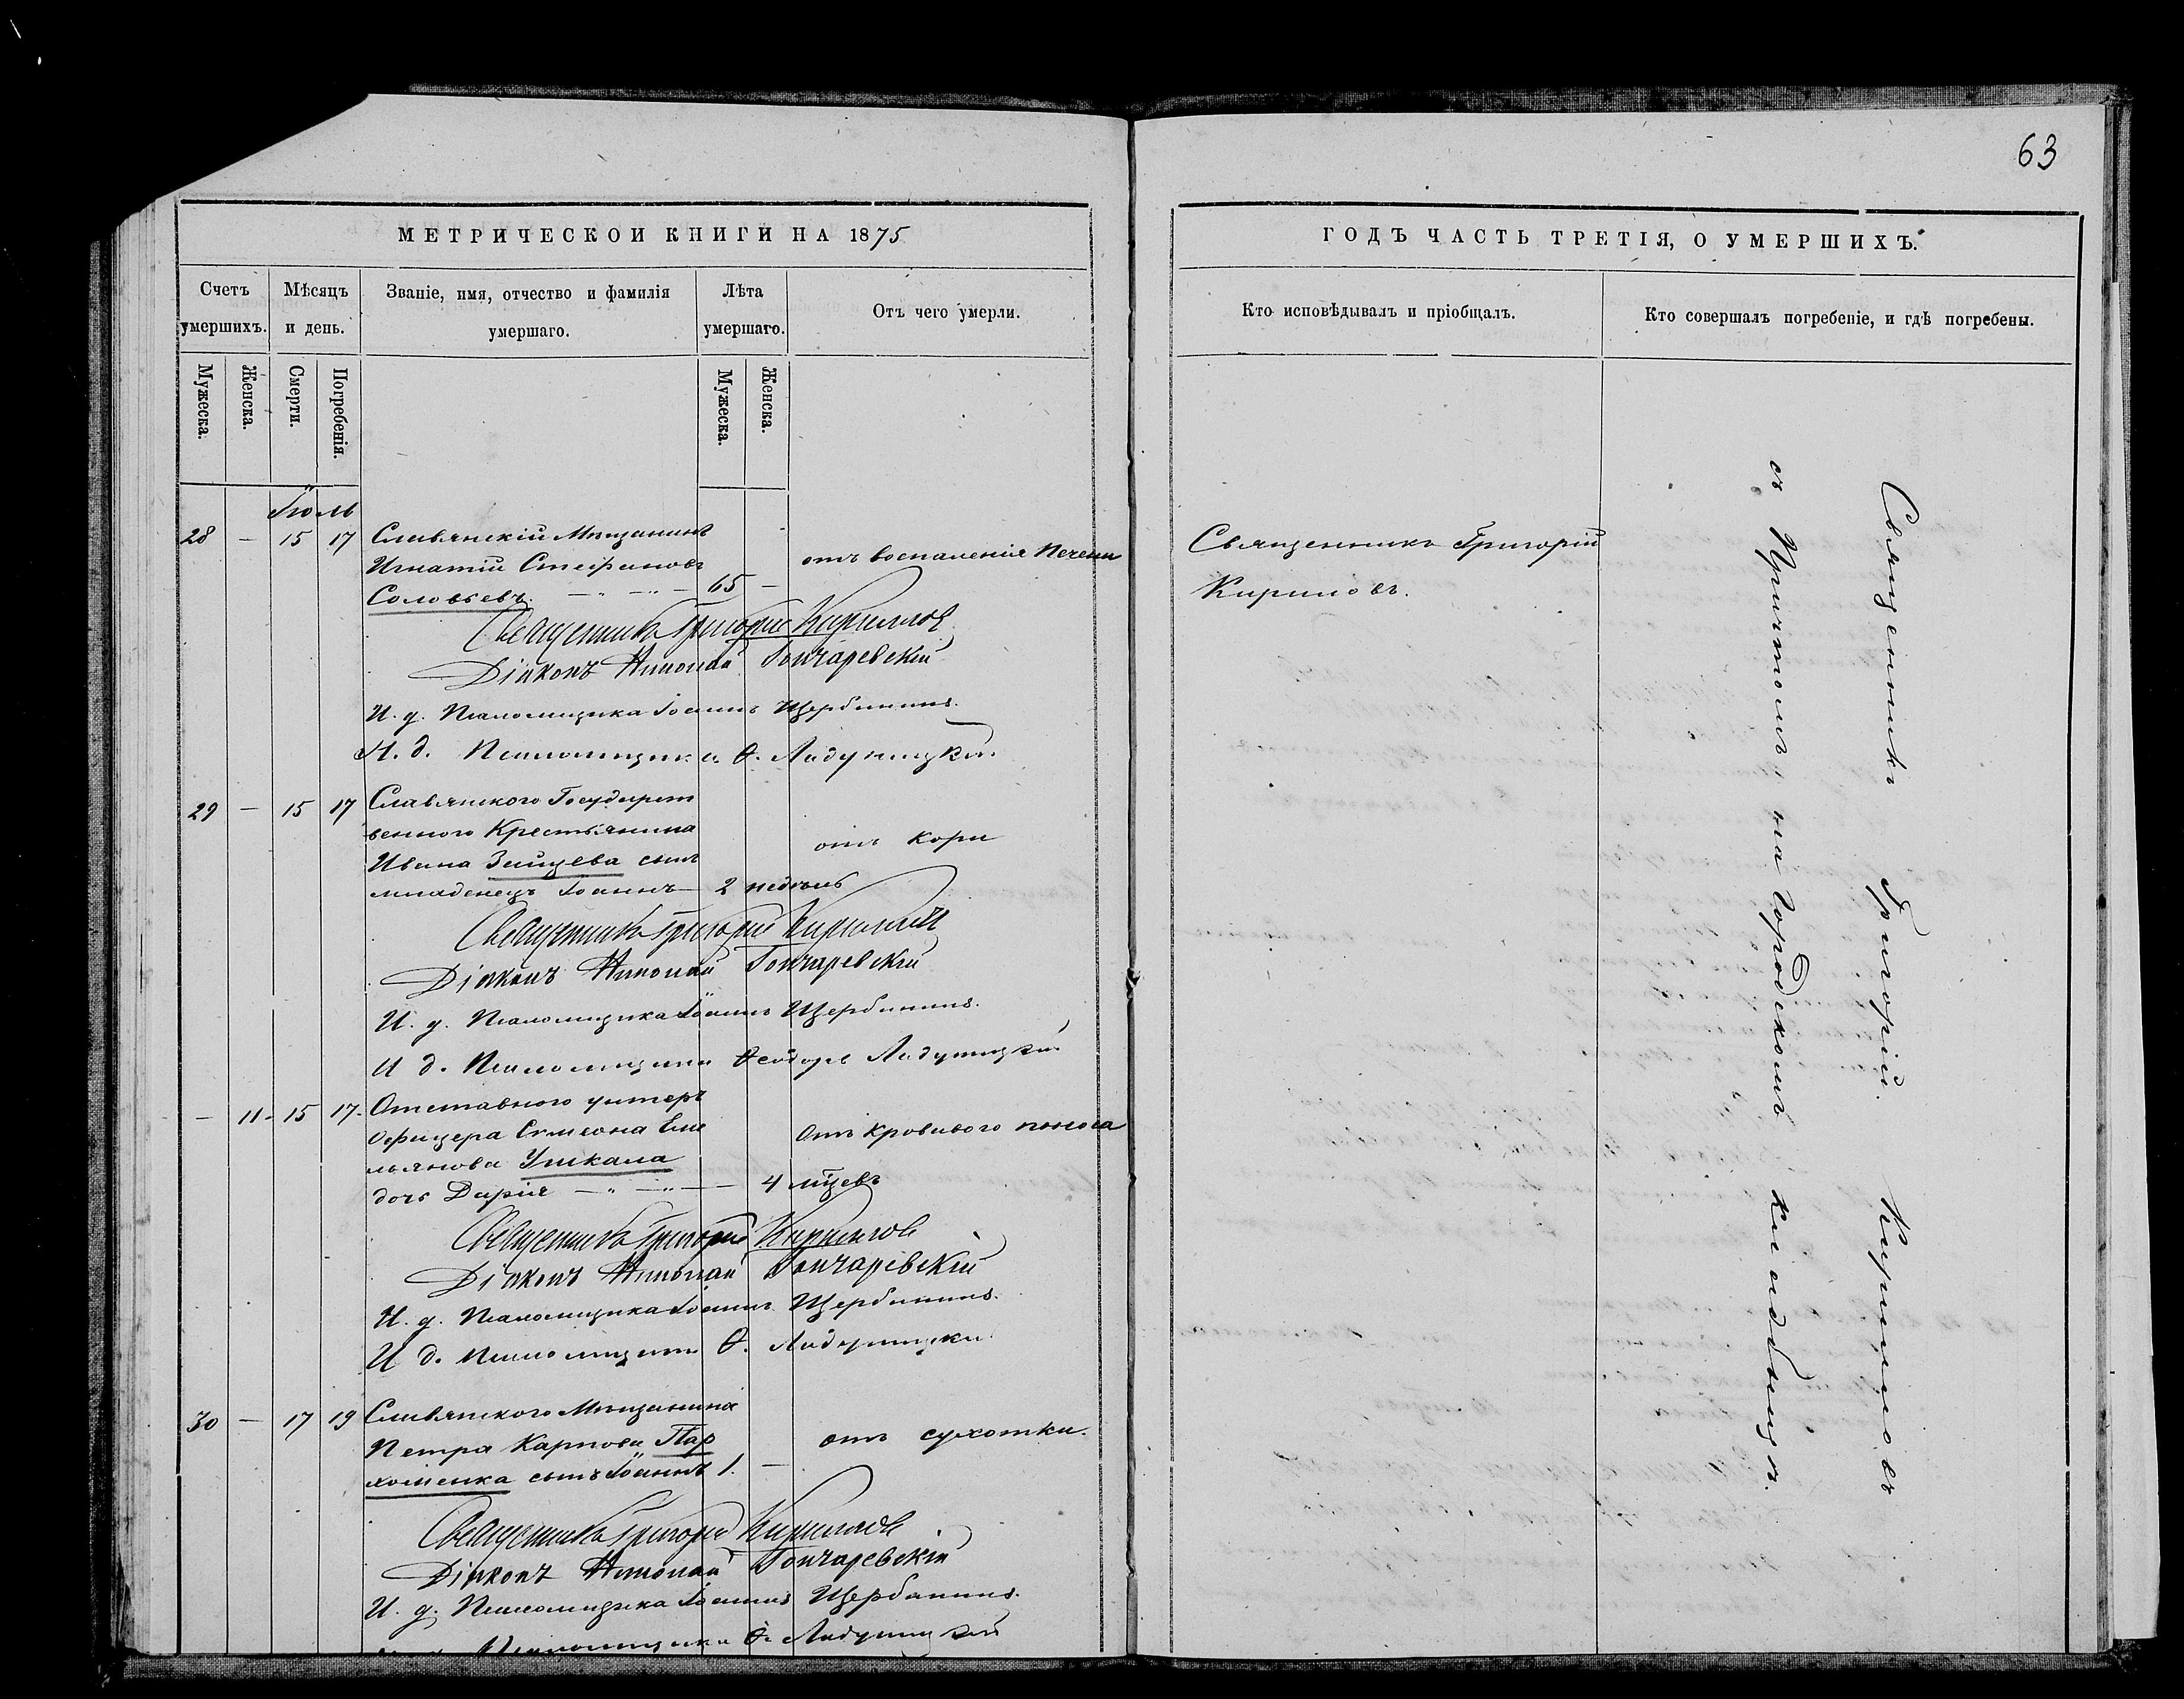 63
МЕТРИЧЕСКОЙ КНИГИ НА 1875
ГОДЪ ЧАСТЬ ТРЕТІЯ, О УМЕРШИХЪ.
Счетъ умершихъ.
Мѣсяцъ и день.
Званіе, имя, отчество и фамилія умершаго.
Лѣта умершаго.
Отъ чего умерли.
Кто исповѣдывалъ и пріобщалъ.
Кто совершалъ погребеніе, и гдѣ погребены.
Мужеска.
Женска.
Смерти.
Погребенія.
Мужеска.
Женска.
Іюль
28 — 15 17 Славянскій Мѣщанинъ
Игнатій Стефановъ отъ воспаленія Печени
Соловьевъ. 65 —
Священникъ Григорій
Кириловъ.
Священникъ Григорій Кириллов
Діаконъ Николай Гончаревскій
И. д. Псаломщика Іоаннъ Щербининъ.
И. д. Псаломщика Ѳ. Ладуницкій
29 — 15 17 Славянского Государст
венного Крестьянина
Ивана Зайцева сынъ отъ кори
младенецъ Іоаннъ — 2 недѣль
Священникъ Григорій Кириллов
Діаконъ Николай Гончаревскій
И. д. Псаломщика Іоаннъ Щербининъ.
И д. Псаломщика Ѳеодоръ Ладуницкій
— 11 - 15 17 - Отставного унтеръ
Офицера Симеона Еме
льянова Ушкала отъ кровавого поноса
дочь Дарія — 4 мѣцевъ
Священникъ Григорій Кириллов
Діаконъ Николай Гончаревскій
И. д. Псаломщика Іоаннъ Щербининъ.
И д. Псаломщика Ѳ. Ладуницкій
30 — 17 19 Славянского Мѣщанина
Петра Карпова Пар
хоменка сынъ Іоаннъ 1. — отъ сухотки.
Священникъ Григорій Кириллов
Діаконъ Николай Гончаревскій
И. д. Псаломщика Іоаннъ Щербининъ.
Псаломщика Ѳ. Ладуницкій
Священникъ Григорій Кирилловъ
съ Причтомъ на Городскомъ кладбищѣ.